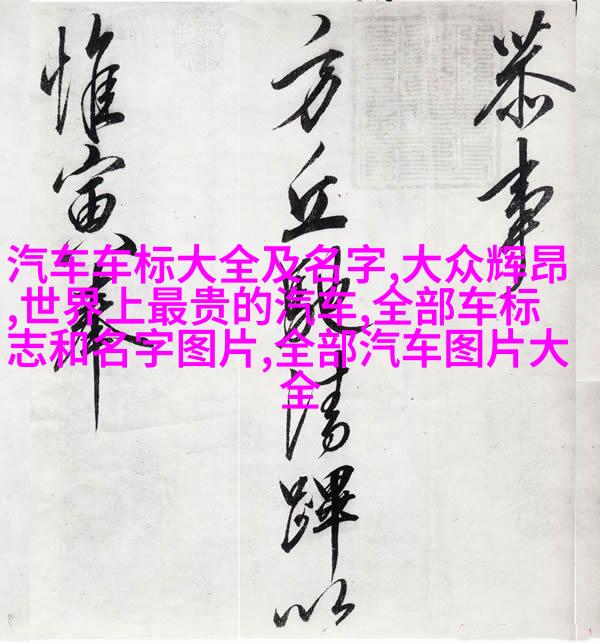 恭事
方丘清蹕以
惟寅奉
汽车车标大全及名字,大众辉昂
,世界上最贵的汽车,全部车标
志和名字图片,全部汽车图片大
全